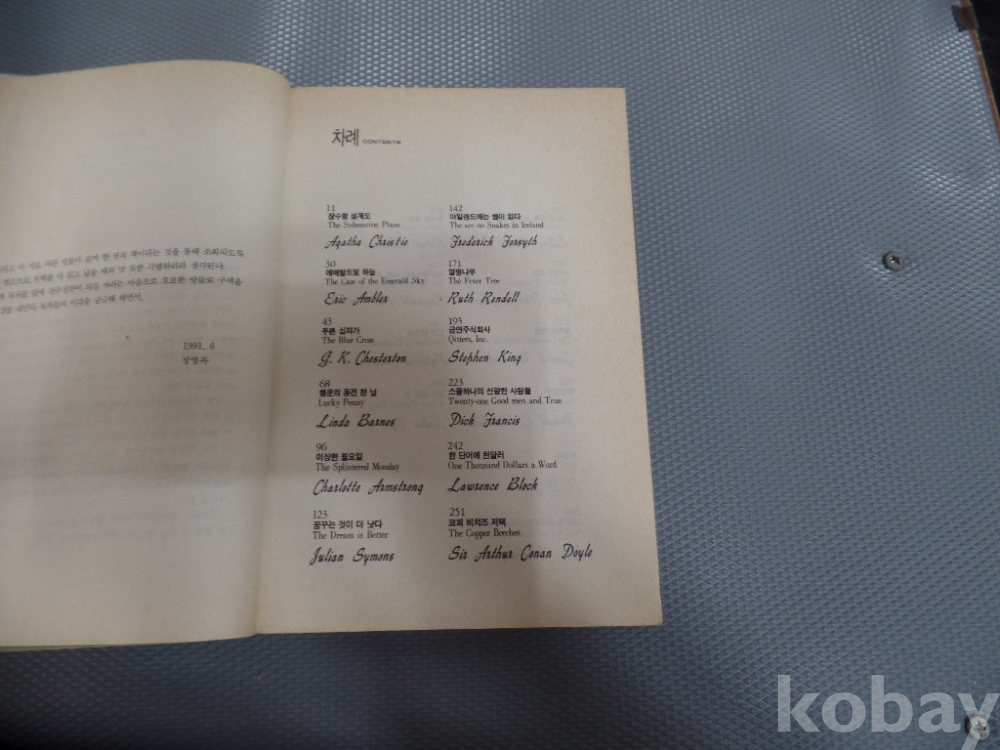 차례 CONTENTS
11
잠수함 설계도
The Submarine Plans
Agatha Christie
30
에메랄드빛 하늘
The Case of the Emerald Sky
Eric Ambler
43
푸른 십자가
The Blue Cross
G. K. Chesterton
68
행운의 동전 한 닢
Lucky Penny
Linda Barnes
96
이상한 월요일
The Splintered Monday
Charlotte Armstrong
123
꿈꾸는 것이 더 낫다
The Dream is Better
Julian Symons
142
아일랜드에는 뱀이 없다
The are no Snakes in Ireland
Frederick Forsyth
171
열병나무
The Fever Tree
Ruth Rendell
193
금연주식회사
Qitters, Inc.
Stephen King
223
스물하나의 선량한 사람들
Twenty-one Good men and True
Dick Francis
242
한 단어에 천달러
One Thousand Dollars a Word
Lawrence Block
251
코퍼 비치즈 저택
The Copper Beeches
Sir Arthur Conan Doyle
1991. 6
kobay